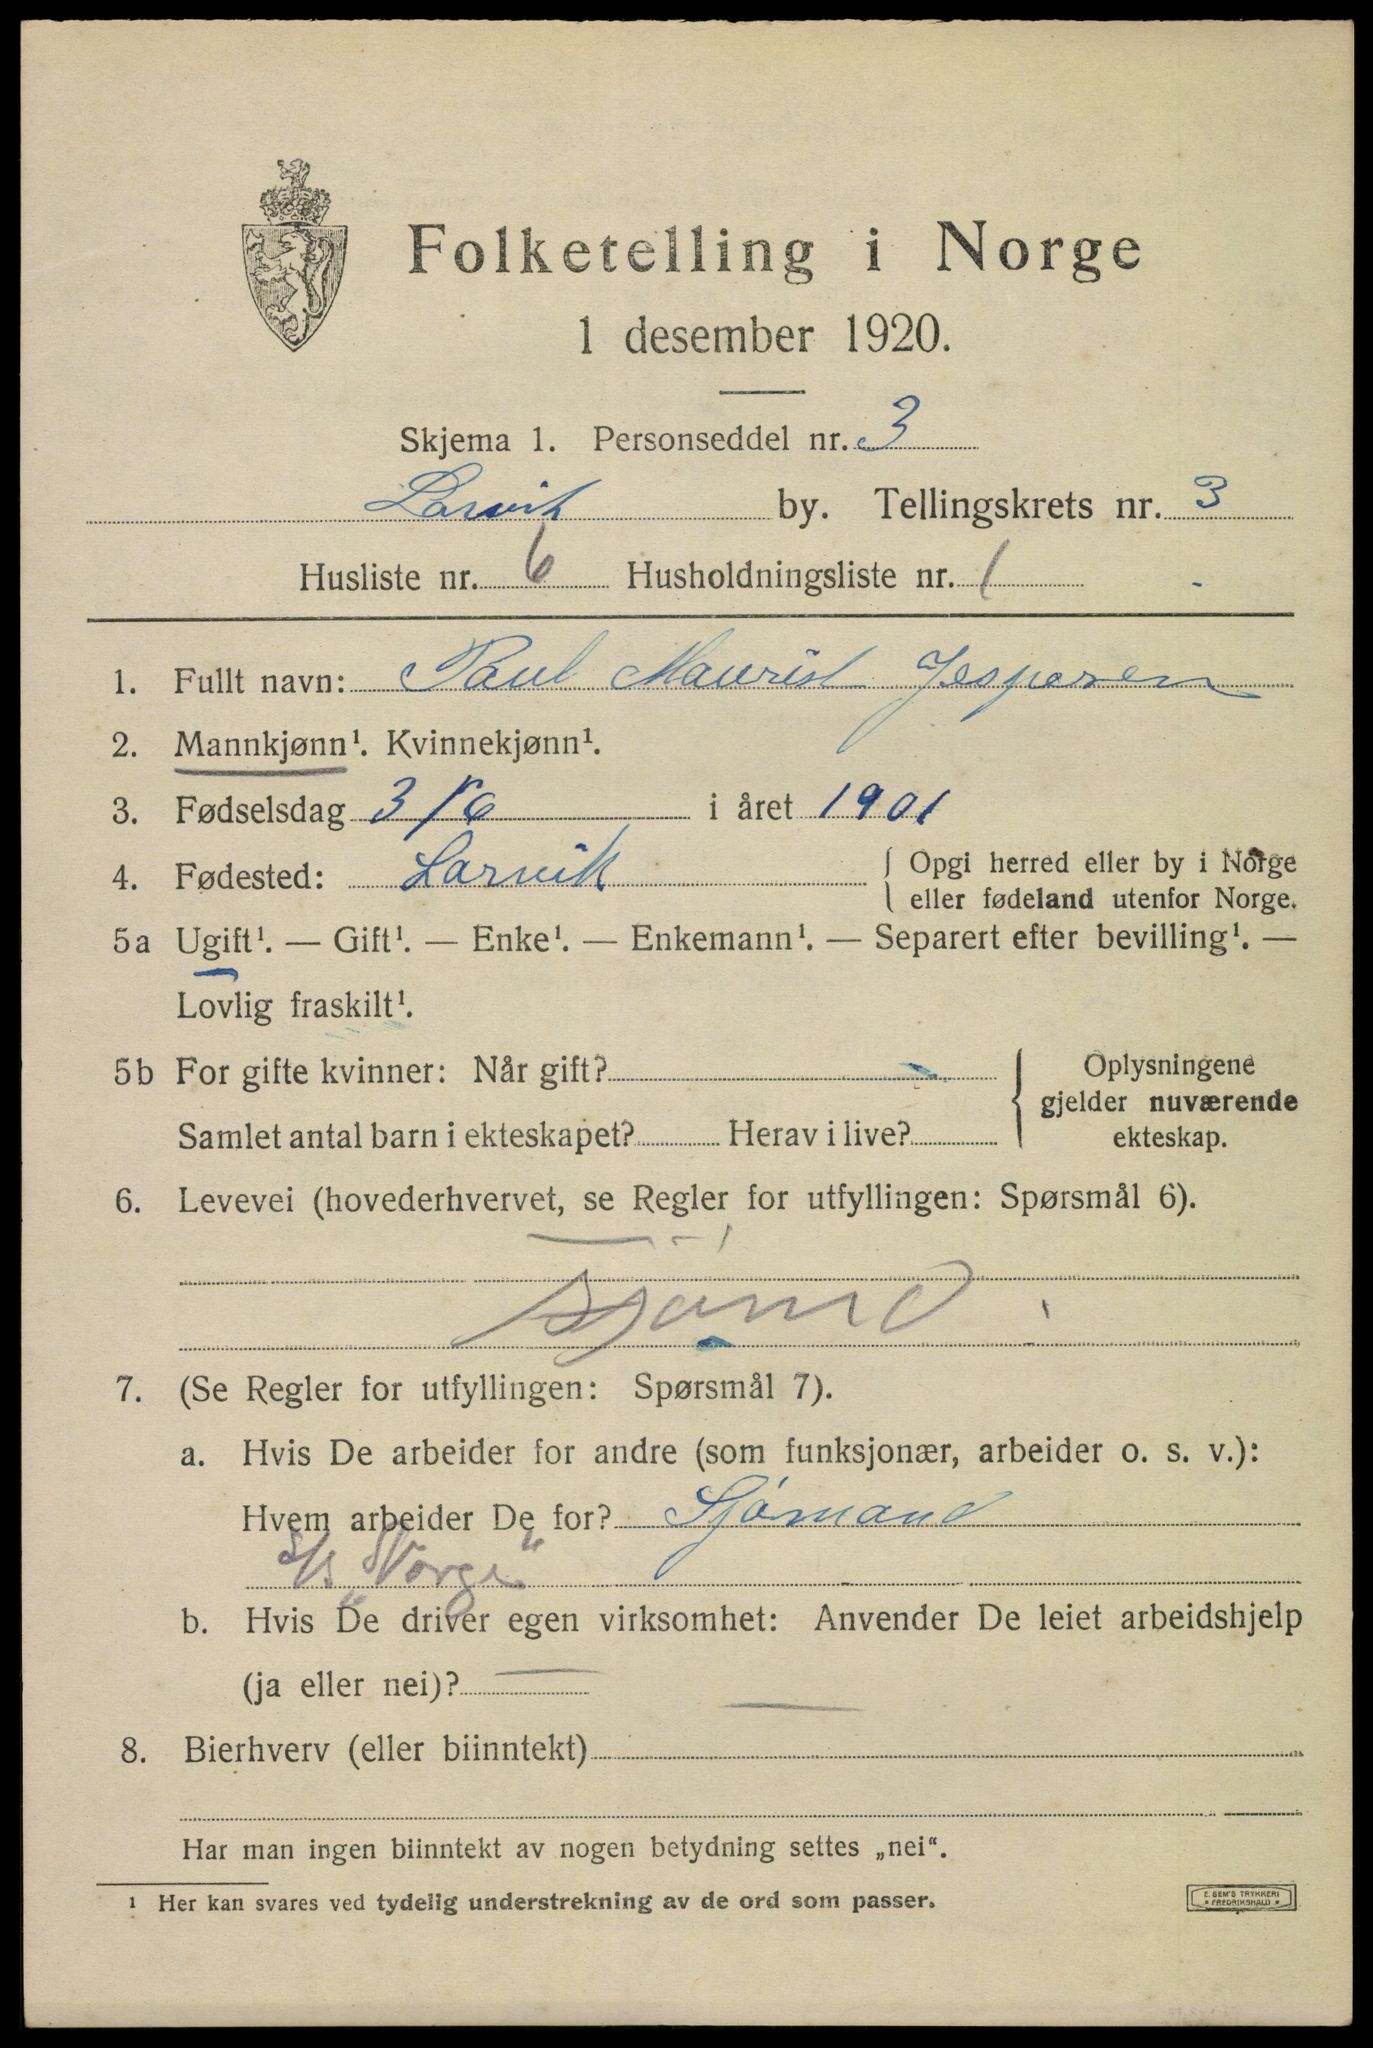 Folketelling i Norge
1 desember 1920.
Skjema 1. Personseddel nr. 3
Larvik by. Tellingskrets nr. 3
Husliste nr. 6 Husholdningsliste nr. 1
1. Fullt navn: Paul Jespersen
2. Mannkjønn¹. Kvinnekjønn¹.
3. Fødselsdag 3/6 i året 1901
4. Fødested: Larvik { Opgi herred eller by i Norge
eller fødeland utenfor Norge.
5a Ugift¹. — Gift¹. — Enke¹. — Enkemann¹. — Separert efter bevilling¹. —
Lovlig fraskilt¹.
5b For gifte kvinner: Når gift?
Samlet antal barn i ekteskapet? Herav i live?
Oplysningene
gjelder nuværende
ekteskap.
6. Levevei (hovederhvervet, se Regler for utfyllingen: Spørsmål 6).
7. (Se Regler for utfyllingen: Spørsmål 7).
a. Hvis De arbeider for andre (som funksjonær, arbeider o. s. v.):
Hvem arbeider De for? Sjömand
S/S „Norge“
b. Hvis De driver egen virksomhet: Anvender De leiet arbeidshjelp
(ja eller nei)? —
8. Bierhverv (eller biinntekt) —
Har man ingen biinntekt av nogen betydning settes „nei“.
¹ Her kan svares ved tydelig understrekning av de ord som passer.
E. SEM'S TRYKKERI
* FREDRIKSHALD *